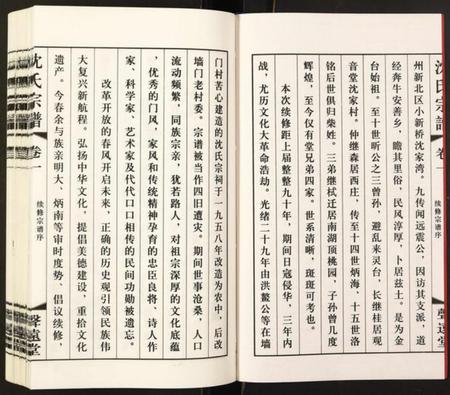 沈氏宗譜
卷一
续修宗谱序
聲遠堂
州新北区小新桥沈家湾。九传闻远震公，因访其支派，道
经奔牛安善乡，瞻其里俗，民风淳厚，卜居兹土。是为金
台始祖。至十世昕公之三曾孙，避乱来灵台，长继桂居观
音堂沈家村。仲继森居西庄，传至十四世炳海、十五世洛
铭后世俱归柴姓。三弟继栻迁居南湖顶桃园，子孙曾几度
辉煌，至今仅有堂兄弟四家。世系清晰，斑斑可考也。
本次续修距上届整整九十年，期间日寇侵华，三年内
战，尤历文化大革命浩劫。光绪二十九年由洪鳌公等在墙
门村苦心建造的沈氏宗祠于一九五八年改造为农中，后改
墙门老村委。宗谱被当作四旧遭灾。期间世事沧桑，人口
流动频繁，同族宗亲，犹若路人，对祖宗深厚的文化底蕴
，优秀的门风，家风和传统精神孕育的忠臣良将、诗人作
家、科学家、艺术家及代代口口相传的民间功勋被遗忘。
改革开放的春风开启未来，正确的历史观引领民族伟
大复兴新航程。弘扬中华文化，提倡美德建设，重拾文化
遗产。今春余与族亲明大、炳南等审时度势、倡议续修，
沈氏宗譜
卷一
续修宗谱序
聲遠堂